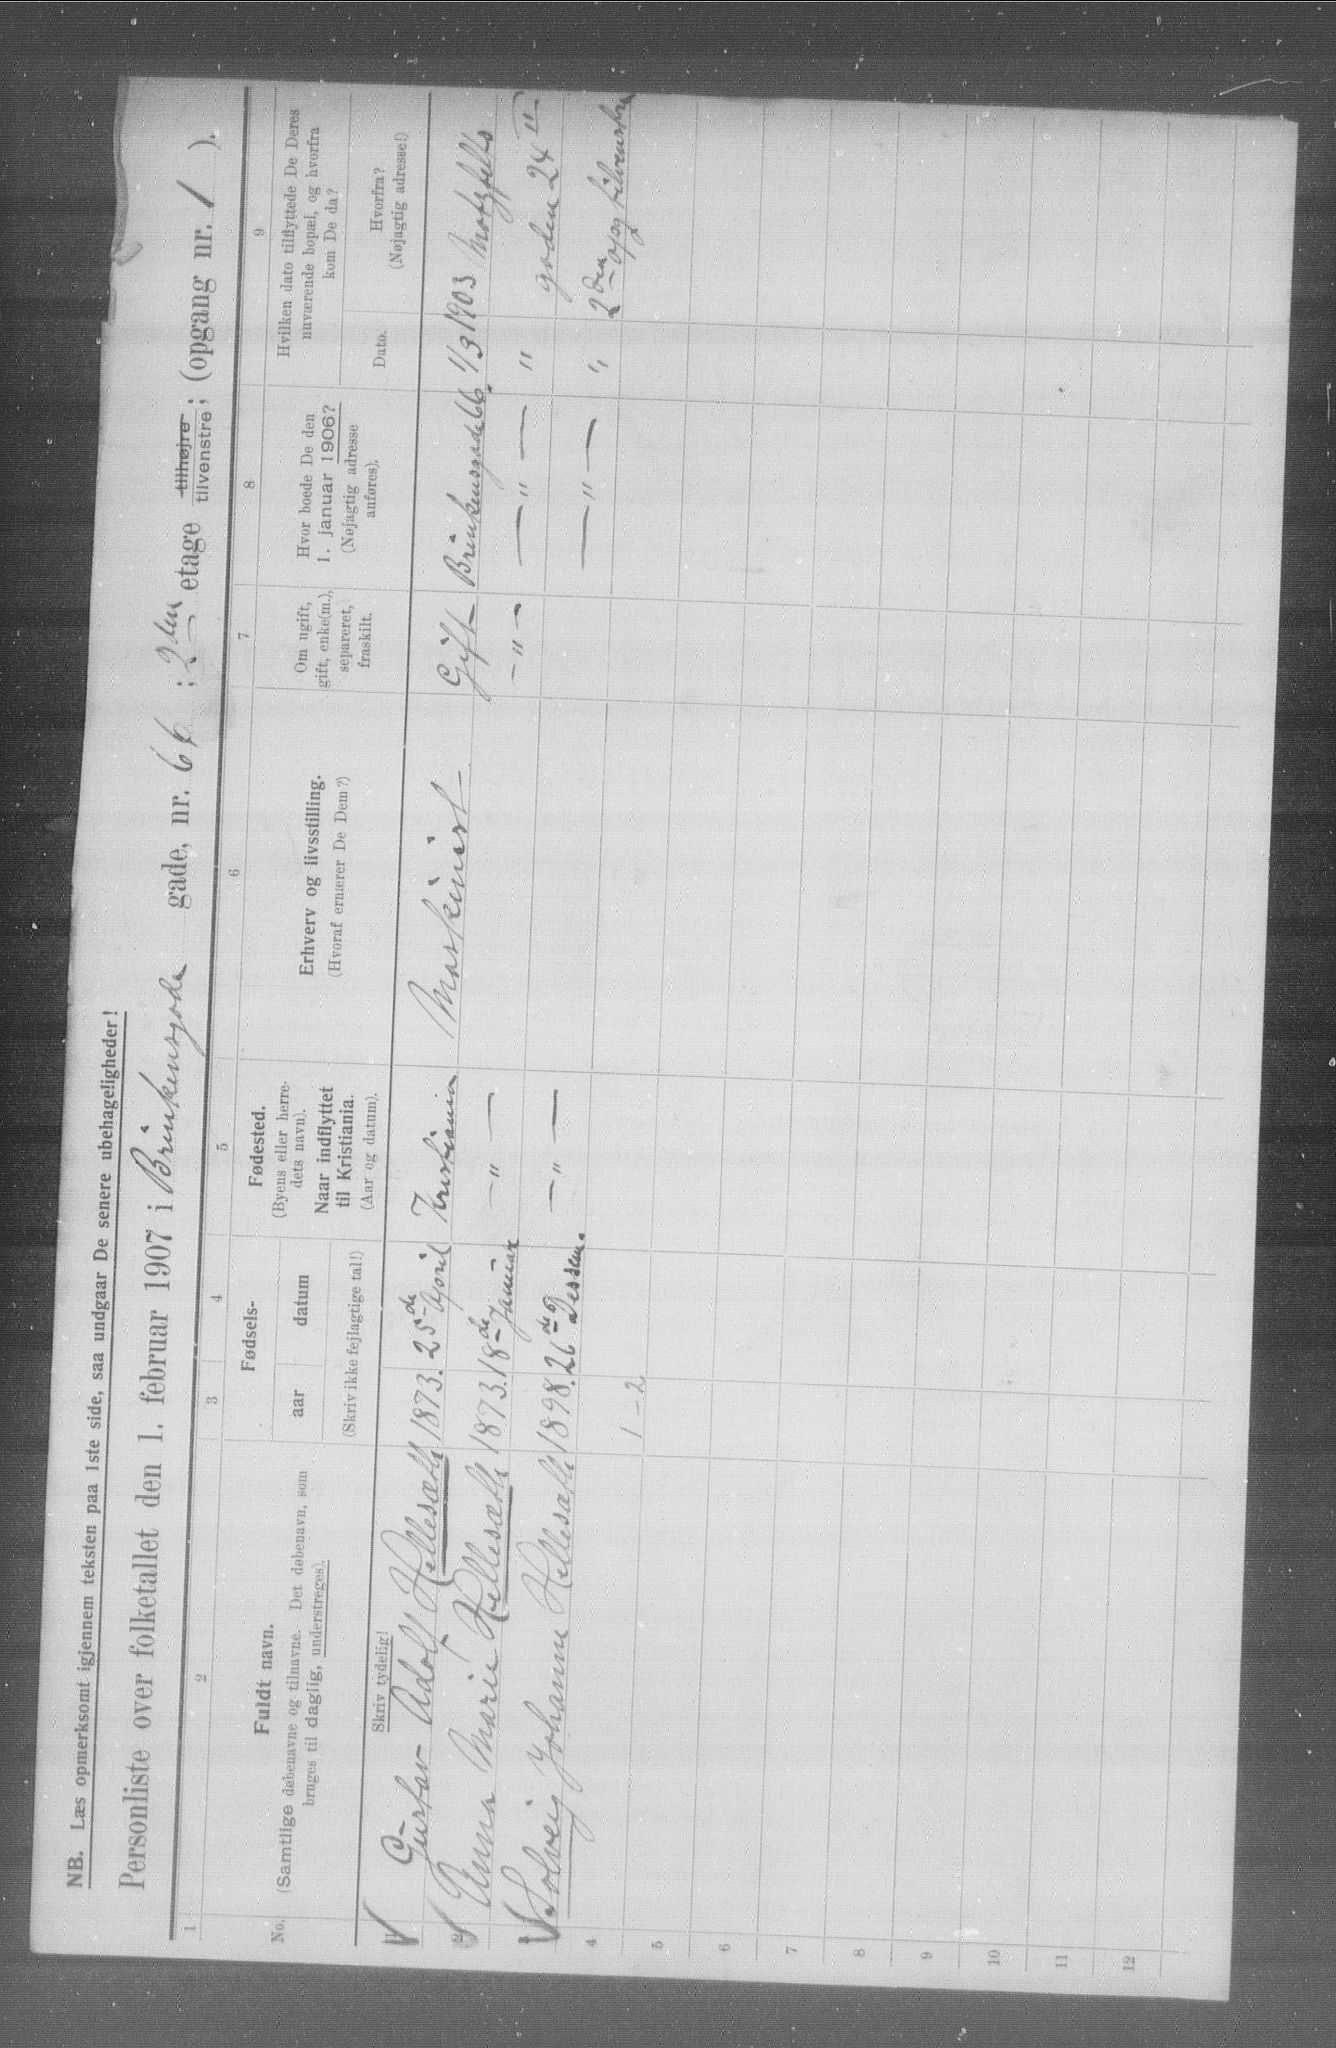 NB. Læs opmerksomt igjennem teksten paa 1ste side, saa undgaar De senere ubehageligheder!
Personliste over folketallet den 1. februar 1907 i Brinkensgade gade, nr. 66 ; 2den etage tilhøjre tilvenstre; (opgang nr. 1 ).
1 2 3 4 5 6 7 8 9
No.
Fuldt navn.
(Samtlige døbenavne og tilnavne. Det døbenavn, som
bruges til daglig, understreges).
Skriv tydelig!
Fødsels-
aar datum
(Skriv ikke fejlagtige tal!)
Fødested.
(Byens eller herre-
dets navn).
Naar indflyttet
til Kristiania.
(Aar og datum).
Erhverv og livsstilling.
(Hvoraf ernærer De Dem?)
Om ugift,
gift, enke(m.),
separeret,
fraskilt.
Hvor boede De den
1. januar 1906?
(Nøjagtig adresse
anføres).
Hvilken dato tilflyttede De Deres
nuværende bopæl, og hvorfra
kom De da?
Dato.
Hvorfra?
(Nøjagtig adresse!)
1 Gustav Adolf Hellesætle 1873. 25de April Kristiania Maskinist Gift Brinkensgade 66. 1/3 1903 Motzfelts
2 Anna Marie Hellesætle 1873. 18de Januar — " — — " — — " — " gaden 24 II
Solveig Johanne Hellesætle 1898. 26de Dessem. — " — — " — " 2den opg tilvenstre
4 1 - 2
5
6
7
8
9
10
11
12